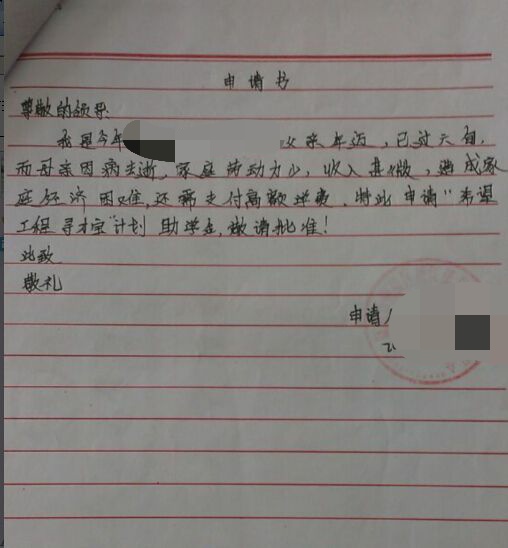 申请书
尊敬的领导
我是今年 父亲年迈,已过六旬,
而母亲因病去逝,家庭劳动力少,收入甚微,造成家
庭经济困难,还需支付高额学费,特此申请"希望
工程寻才宝"计划助学金,敬请批准!
此致
敬礼
申请人